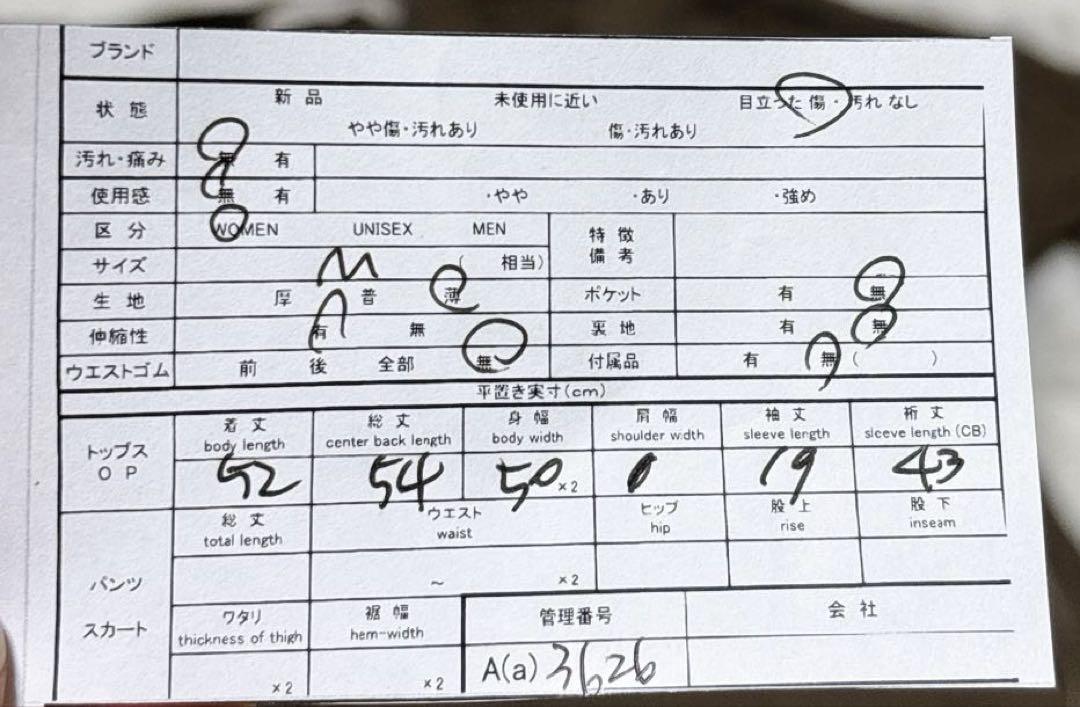 ブランド
状態 新品 未使用に近い 目立った傷・汚れなし
やや傷・汚れあり 傷・汚れあり
汚れ・痛み 無 有
使用感 無 有 ・やや ・あり ・強め
区分 WOMEN UNISEX MEN 特徴備考
サイズ M (相当)
生地 厚 普 薄 ポケット 有 無
伸縮性 有 無 裏地 有 無
ウエストゴム 前 後 全部 無 付属品 有 無 ( )
平置き実寸(cm)
トップス OP 着丈 総丈 身幅 肩幅 袖丈 裄丈
body length center back length body width shoulder width sleeve length sleeve length (CB)
52 54 50 ×2 19 43
総丈 ウエスト ヒップ 股上 股下
total length waist hip rise inseam
パンツ ~ ×2
スカート ワタリ 裾幅 管理番号 会社
thickness of thigh hem-width
×2 ×2 A(a) 3626